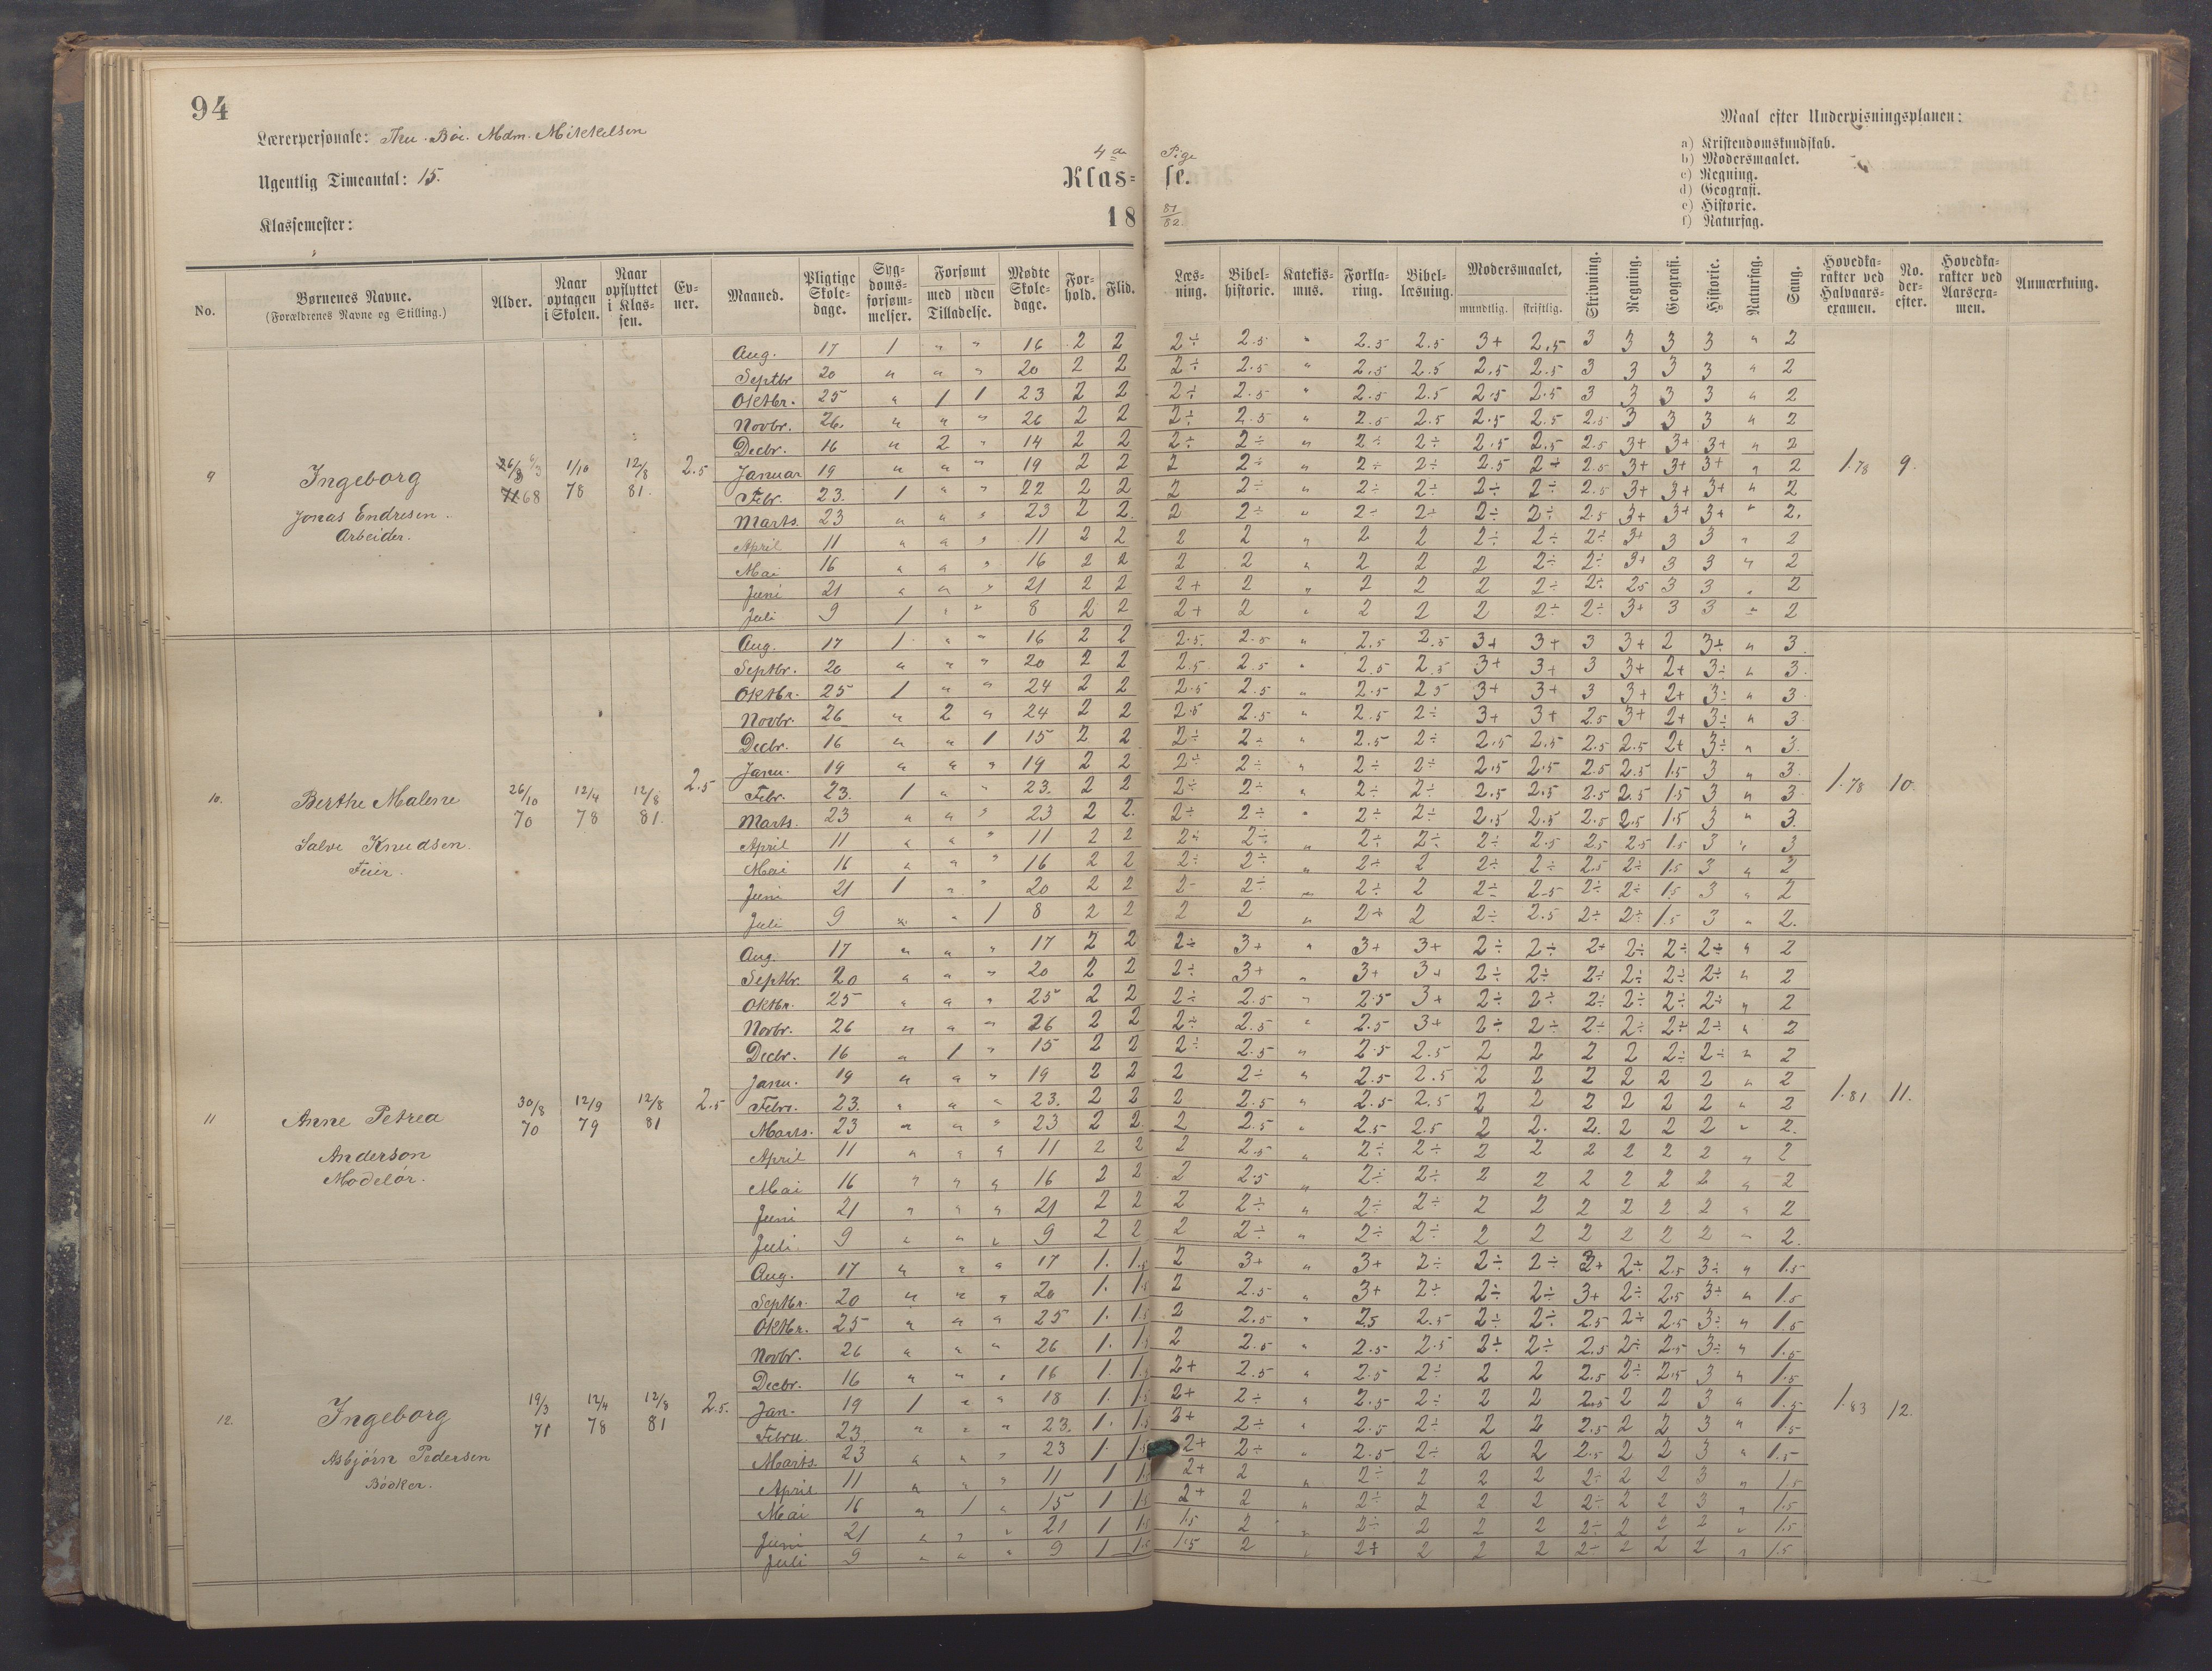 94
Lærerpersonale: Fru. Bøe. Mdm. Mikkelsen
Ugentlig Timeantal: 15.
Klassemester:
4de Pige
Klas= se.
18 81/82
Maal efter Undervisningsplanen:
a) Kristendomskundskab.
b) Modersmaalet.
c) Regning.
d) Geografi.
e) Historie.
f) Naturfag.
No. Børnenes Navne. (Forældrenes Navne og Stilling.) Alder. Naar optagen i Skolen. Naar opflyttet i Klassen. Evner. Maaned. Pligtige Skoledage. Sygdomsforsømmelser. Forsømt med uden Tilladelse. Mødte Skoledage. Forhold. Flid. Læsning. Bibelhistorie. Katekismus. Forklaring. Bibellæsning. Modersmaalet, mundtlig. skriftlig. Skrivning. Regning. Geografi. Historie. Naturfag. Sang. Hovedkarakter ved Halvaarsexamen. No. derefter. Hovedkarakter ved Aarsexamen. Anmærkning.
9 Ingeborg
Jonas Endresen.
Arbeider.
1/10 78 12/8 81. 2.5 1.78 9.
Aug. 17 1 " " 16 2 2 2÷ 2.5 " 2.5 2.5 3+ 2.5 3 3 3 3 " 2
Septbr 20 " " " 20 2 2 2÷ 2.5 " 2.5 2.5 2.5 2.5 3 3 3 3 " 2
Oktbr. 25 " 1 1 23 2 2 2÷ 2.5 " 2.5 2.5 2.5 2.5 3 3 3 3 " 2
Novbr. 26. " " " 26 2 2 2÷ 2.5 " 2.5 2.5 2.5 2.5 2.5 3 3 3 " 2
Decbr. 16 " 2 " 14 2 2 2÷ 2÷ " 2÷ 2÷ 2.5 2.5 2.5 3+ 3+ 3+ " 2
Januar 19 " " " 19 2 2 2 2÷ " 2÷ 2÷ 2.5 2÷ 2.5 3+ 3+ 3+ " 2
Febr. 23. 1 " " 22 2 2 2 2÷ " 2÷ 2÷ 2÷ 2÷ 2.5 3+ 3+ 3+ " 2
Marts. 23 " " " 23 2 2. 2 2÷ " 2÷ 2÷ 2÷ 2÷ 2.5 3+ 3+ 3+ " 2.
April 11 " " " 11 2 2 2 2 " 2 2 2÷ 2÷ 2÷ 3+ 3 3 " 2
Mai 16 " " " 16 2 2 2 2 " 2 2 2 2÷ 2÷ 3+ 3 3 " 2
Juni 21 " " " 21 2 2 2+ 2 " 2 2 2 2÷ 2÷ 25 3 3 " 2
Juli 9 1 " " 8 2 2 2+ 2 " 2 2 2 2÷ 2÷ 3+ 3 3 " 2
10. Berthe Malene
Salve Knudsen.
Feier.
26/10 70 12/4 78 12/8 81. 2.5 1.78 10.
Aug. 17 1 " " 16 2 2 2.5 2.5 " 2.5 2.5 3+ 3+ 3 3+ 2 3÷ " 3.
Septbr. 20 " " " 20 2 2 2.5 2.5 " 2.5 2.5 3+ 3+ 3 3+ 2+ 3÷ " 3.
Oktbr. 25 1 " " 24 2 2 2.5 2.5 " 2.5 25 3+ 3+ 3 3+ 2+ 3÷ " 3.
Novbr. 26 " 2 " 24 2 2 2.5 2.5 " 2.5 2÷ 3+ 3+ 2.5 3+ 2+ 3÷ " 3.
Decbr. 16 " " 1 15 2 2 2÷ 2÷ " 2.5 2÷ 2.5 2.5 2.5 2.5 2+ 3÷ " 3.
Janu. 19 " " " 19 2 2 2÷ 2÷ " 2÷ 2÷ 2.5 2.5 2.5 2.5 1.5 3 " 3.
Febr. 23. 1 " " 23. 2 2 2÷ 2÷ " 2÷ 2÷ 2.5 2.5 2.5 2.5 1.5 3 " 3.
Marts. 23 " " " 23 2 2. 2÷ 2÷ " 2÷ 2÷ 2.5 2.5 2.5 2.5 1.5 3 " 3.
April 11 " " " 11 2 2 2÷ 2÷ " 2÷ 2÷ 2÷ 2.5 2.5 2.5 1.5 3 " 3
Mai 16 " " " 16 2 2 2÷ 2÷ " 2÷ 2 2÷ 2÷ 2.5 2÷ 1.5 3 " 2
Juni 21 1 " " 20 2 2 2- 2÷ " 2÷ 2 2÷ 2.5 2÷ 2÷ 1.5 3 " 2
Juli 9 " " 1 8 2 2 2 2 " 2÷ 2 2÷ 2.5 2÷ 2÷ 1.5 3 " 2.
11 Anne Petrea
Anderson
Modelør.
30/8 70 12/9 79 12/8 81 2.5 1.81 11.
Aug. 17 " " " 17 2 2 2÷ 3+ " 3+ 3+ 2÷ 2÷ 2+ 2÷ 2÷ 2÷ " 2
Septbr. 20 " " " 20 2 2 2÷ 3+ " 3+ 3+ 2÷ 2÷ 2÷ 2÷ 2÷ 2÷ " 2
Oktbr. 25 " " " 25 2 2 2÷ 2.5 " 2.5 3+ 2÷ 2÷ 2÷ 2÷ 2÷ 2÷ " 2
Novbr. 26 " " " 26 2 2 2÷ 2.5 " 2.5 3+ 2÷ 2÷ 2÷ 2÷ 2÷ 2÷ " 2
Decbr. 16 " 1 " 15 2 2 2÷ 2.5 " 2.5 2.5 2 2 2 2 2÷ 2÷ " 2
Janu. 19 " " " 19 2 2 2 2÷ " 2.5 2.5 2 2 2 2 2 2 " 2
Febr. 23. " " " 23. 2 2 2 2.5 " 2.5 2.5 2 2 2 2 2 2 " 2
Marts. 23 " " " 23 2 2. 2 2.5 " 2.5 2.5 2 2. 2. 2 2 2 " 2.
April 11 " " " 11 2 2 2 2.5 " 2÷ 2÷ 2 2 2 2 2 2 " 2
Mai 16 " " " 16 2 2 2 2.5 " 2÷ 2÷ 2 2 2 2 2 2 " 2
Juni 21 " " " 21 2 2 2 2÷ " 2÷ 2÷ 2 2 2 2 2 2 " 2
Juli. 9 " " " 9 2 2 2 2÷ " 2÷ 2÷ 2 2 2 2 2 2 " 2.
12. Ingeborg
Asbjørn Pedersen
Bødker.
19/3 71 12/4 78 12/8 81 2.5. 1.83 12.
Aug. 17 " " " 17 1. 1.5 2 3+ " 3+ 2÷ 2÷ 2÷ 3+ 2÷ 2.5 3÷ " 1.5
Septbr. 20 " " " 20 1. 1.5 2 2.5 " 3+ 2÷ 2÷ 2÷ 3+ 2÷ 2.5 3÷ " 1.5
Oktbr. 25 " " " 25 1. 1.5 2 2.5 " 25 2.5 2÷ 2÷ 2.5 2÷ 2.5 3÷ " 1.5
Novbr. 26 " " " 26 1. 1.5 2 2.5 " 2.5 2.5 2÷ 2÷ 2.5 2÷ 2.5 3÷ " 1.5
Decbr. 16 " " " 16 1. 1.5 2+ 2.5 " 2.5 2÷ 2 2 2.5 2÷ 2.5 3 " 1.5
Jan. 19 1 " " 18 1. 1.5 2+ 2÷ " 2.5 2÷ 2 2 2.5 2 2 3 " 1.5
Febru. 23. " " " 23. 1. 1.5 2+ 2÷ " 2.5 2÷ 2 2 2.5 2 2 3 " 1.5
Marts. 23 " " " 23 1. 1.5 2+ 2÷ " 2.5 2÷ 2 2 2.5 2 2 3 " 1.5
April 11 " " " 11 1 1.5 2+ 2 " 2÷ 2 2 2 2÷ 2 2 3 " 1.5
Mai 16 " 1 " 15 1 1.5 2+ 2 " 2÷ 2 2 2 2÷ 2 2 3 " 1.5
Juni 21 " " " 21 1 1.5 1.5 2 " 2÷ 2 2 2 2÷ 2 2 2 " 1.5
Juli 9 " " " 9 1 1.5 1.5 2 " 2+ 2 2 2 2÷ 2 2 2 " 1.5